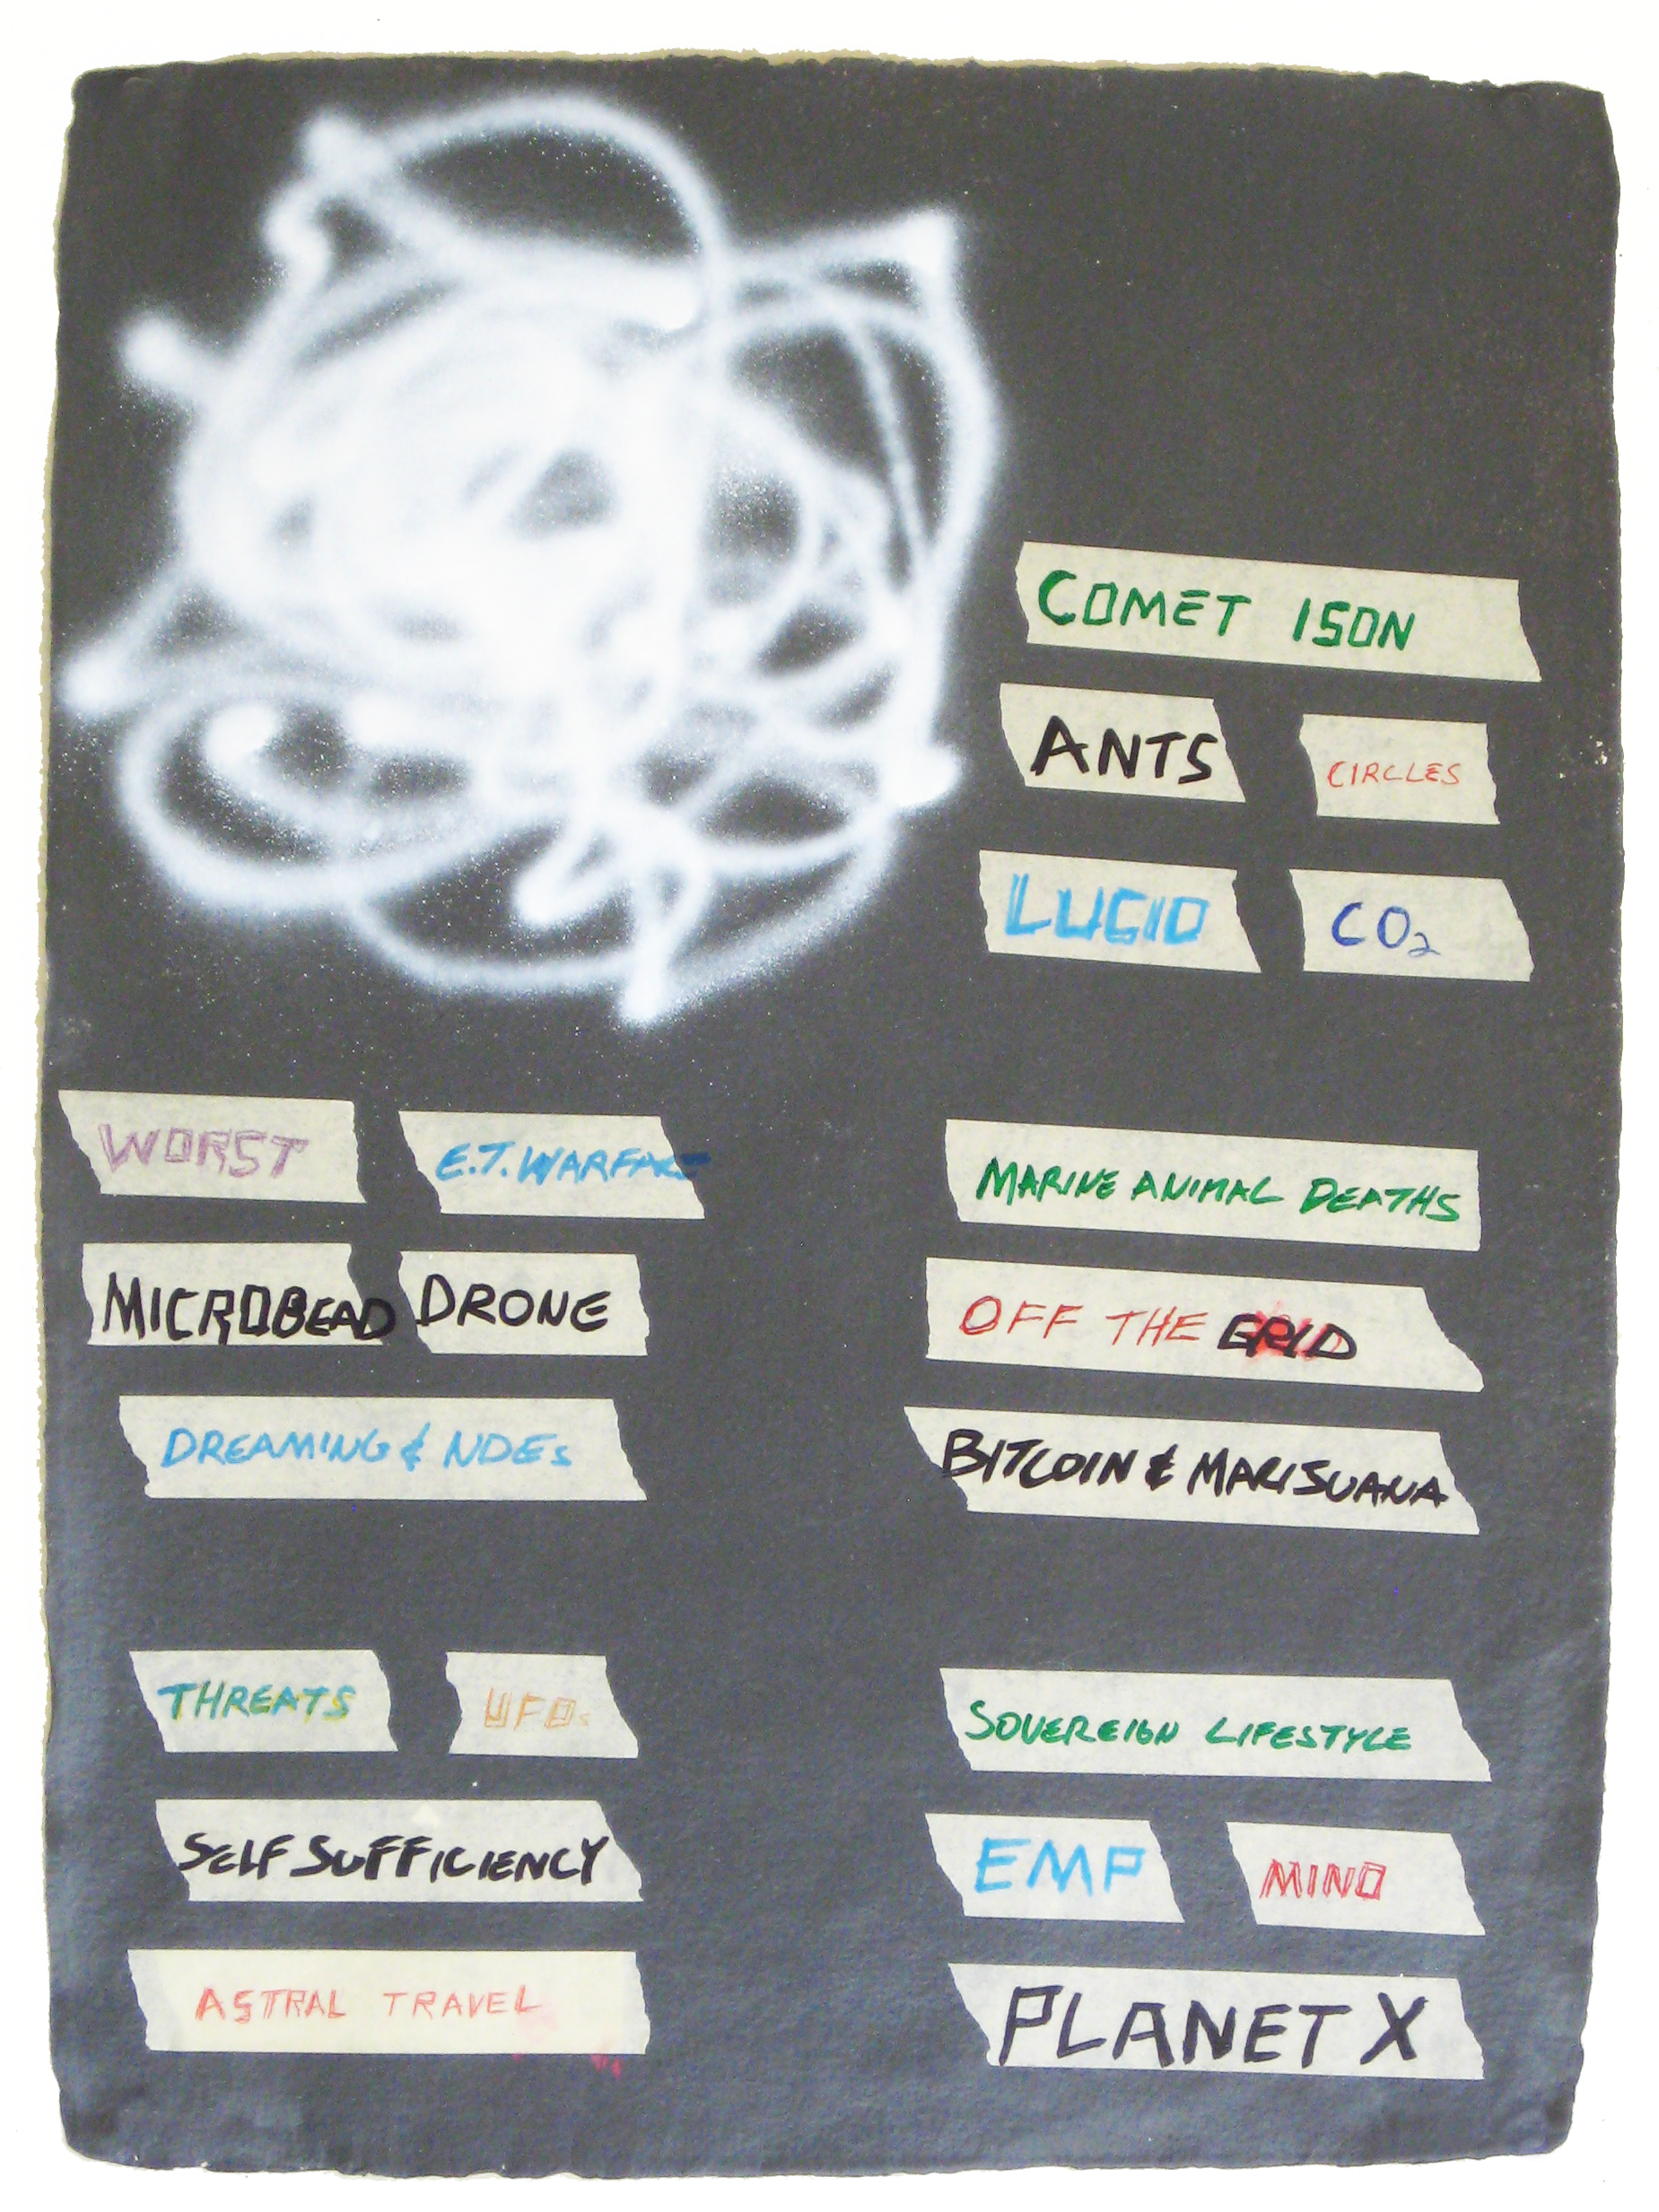 COMET ISON
ANTS CIRCLES
LUCID CO₂
WORST E.T. WARFARE
MICROBEAD DRONE
DREAMING & NDEs
MARINE ANIMAL DEATHS
OFF THE GRID
BITCOIN & MARISUANA
THREATS UFOs
SELF SUFFICIENCY
ASTRAL TRAVEL
SOVEREIGN LIFESTYLE
EMP MIND
PLANET X